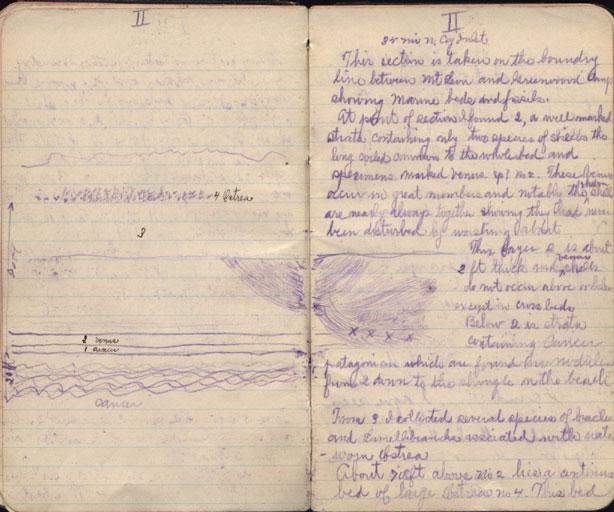 II
4 Ostrea
3
2 venus
1 cancer
20 ft
cancer
II
This section is taken on the boundry
line between Mt Leon and Greenwood Camp
showing Marine beds and fossils.
At point of section I found 2, a well marked
strata containing only two species of shells the
long coiled common to the whole bed and
specimens marked venus sp! no 2. These
occur in great numbers and notably the shells
are nearly always together showing they had never
been disturbed by washing about
This layer 2 is about
2 ft thick and venus shells
do not occur above or below
except in cross beds
Below 2 is strata
containing Cancer
patagonian which are found in nodules
from 2 down to the shingle on the beach
From 3 I collected several species of
and Lamellibranchs associated with water
- worn Ostrea
About 70 ft above no 2 lies a continuous
bed of large Ostrea no 4. This bed